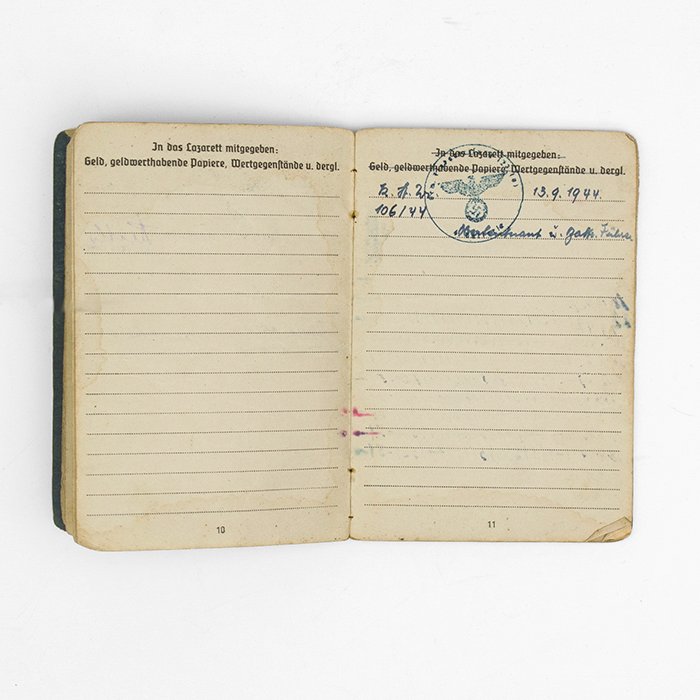 In das Lazarett mitgegeben:
Geld, geldwerthabende Papiere, Wertgegenstände u. dergl.
10
In das Lazarett mitgegeben:
Geld, geldwerthabende Papiere, Wertgegenstände u. dergl.
13.9.1944.
106/44
Oberleutnant u.
11